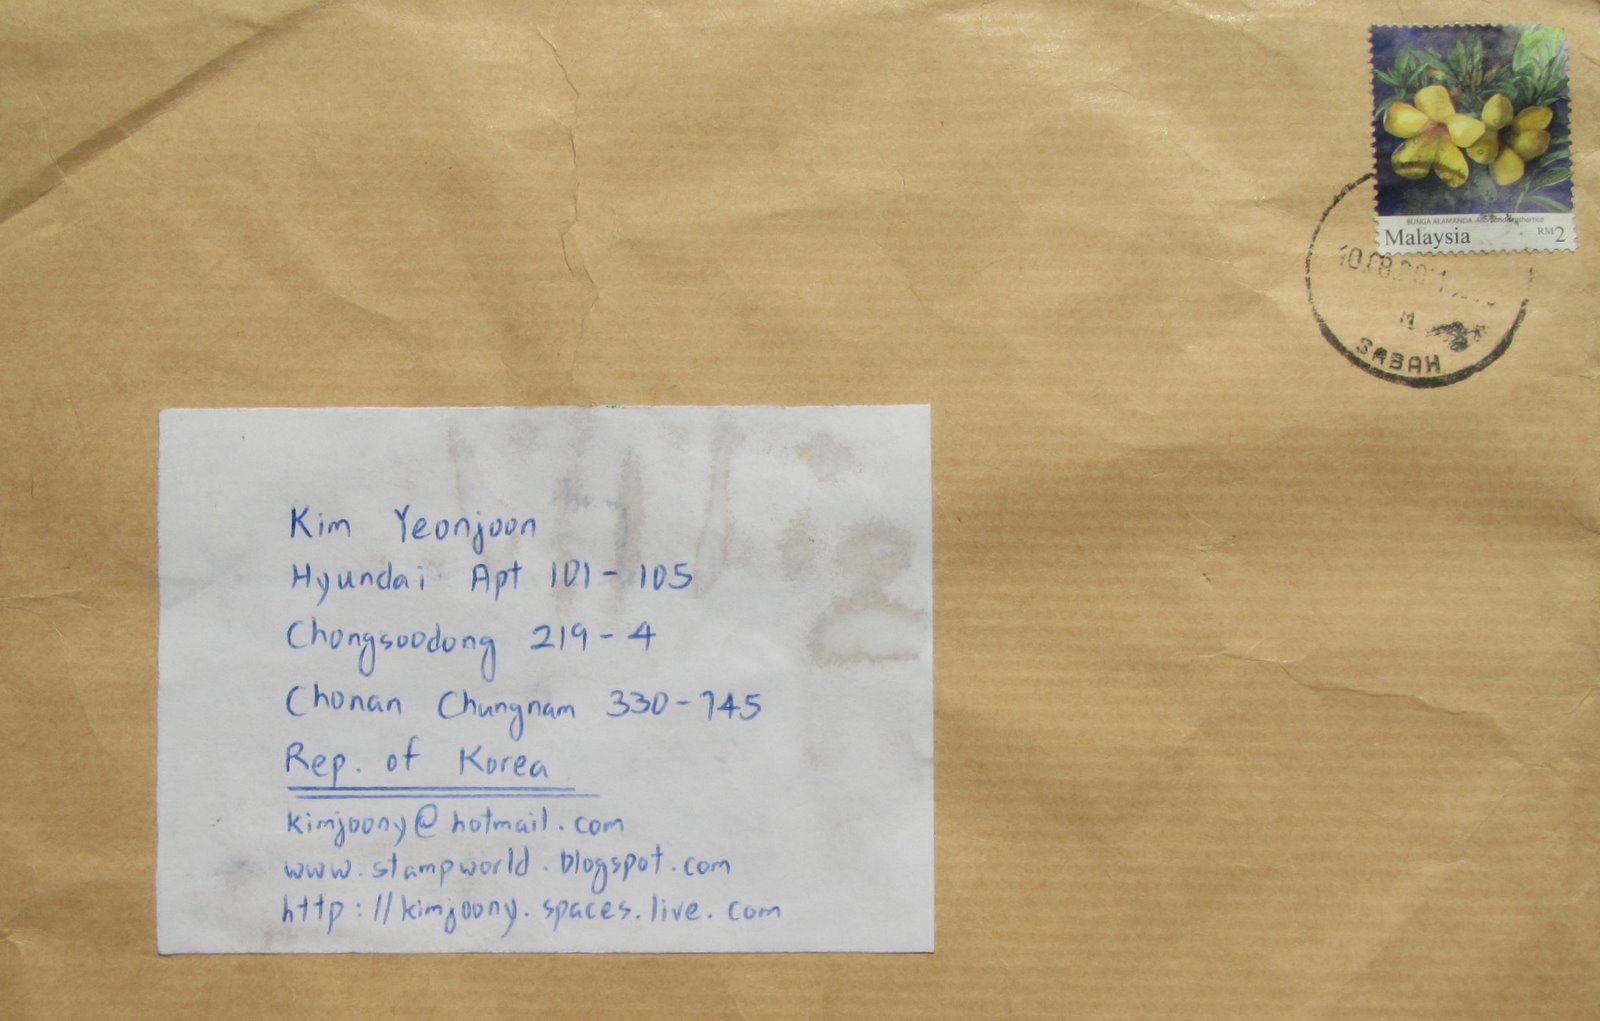 BUNGA ALAMANDA
Malaysia RM2
M
SABAH
Kim Yeonjoon
Hyundai Apt 101-105
Chongsoodong 219-4
Chonan Chungnam 330-745
Rep. of Korea
kimjoony@hotmail.com
www.stampworld.blogspot.com
http://kimjoony.spaces.live.com